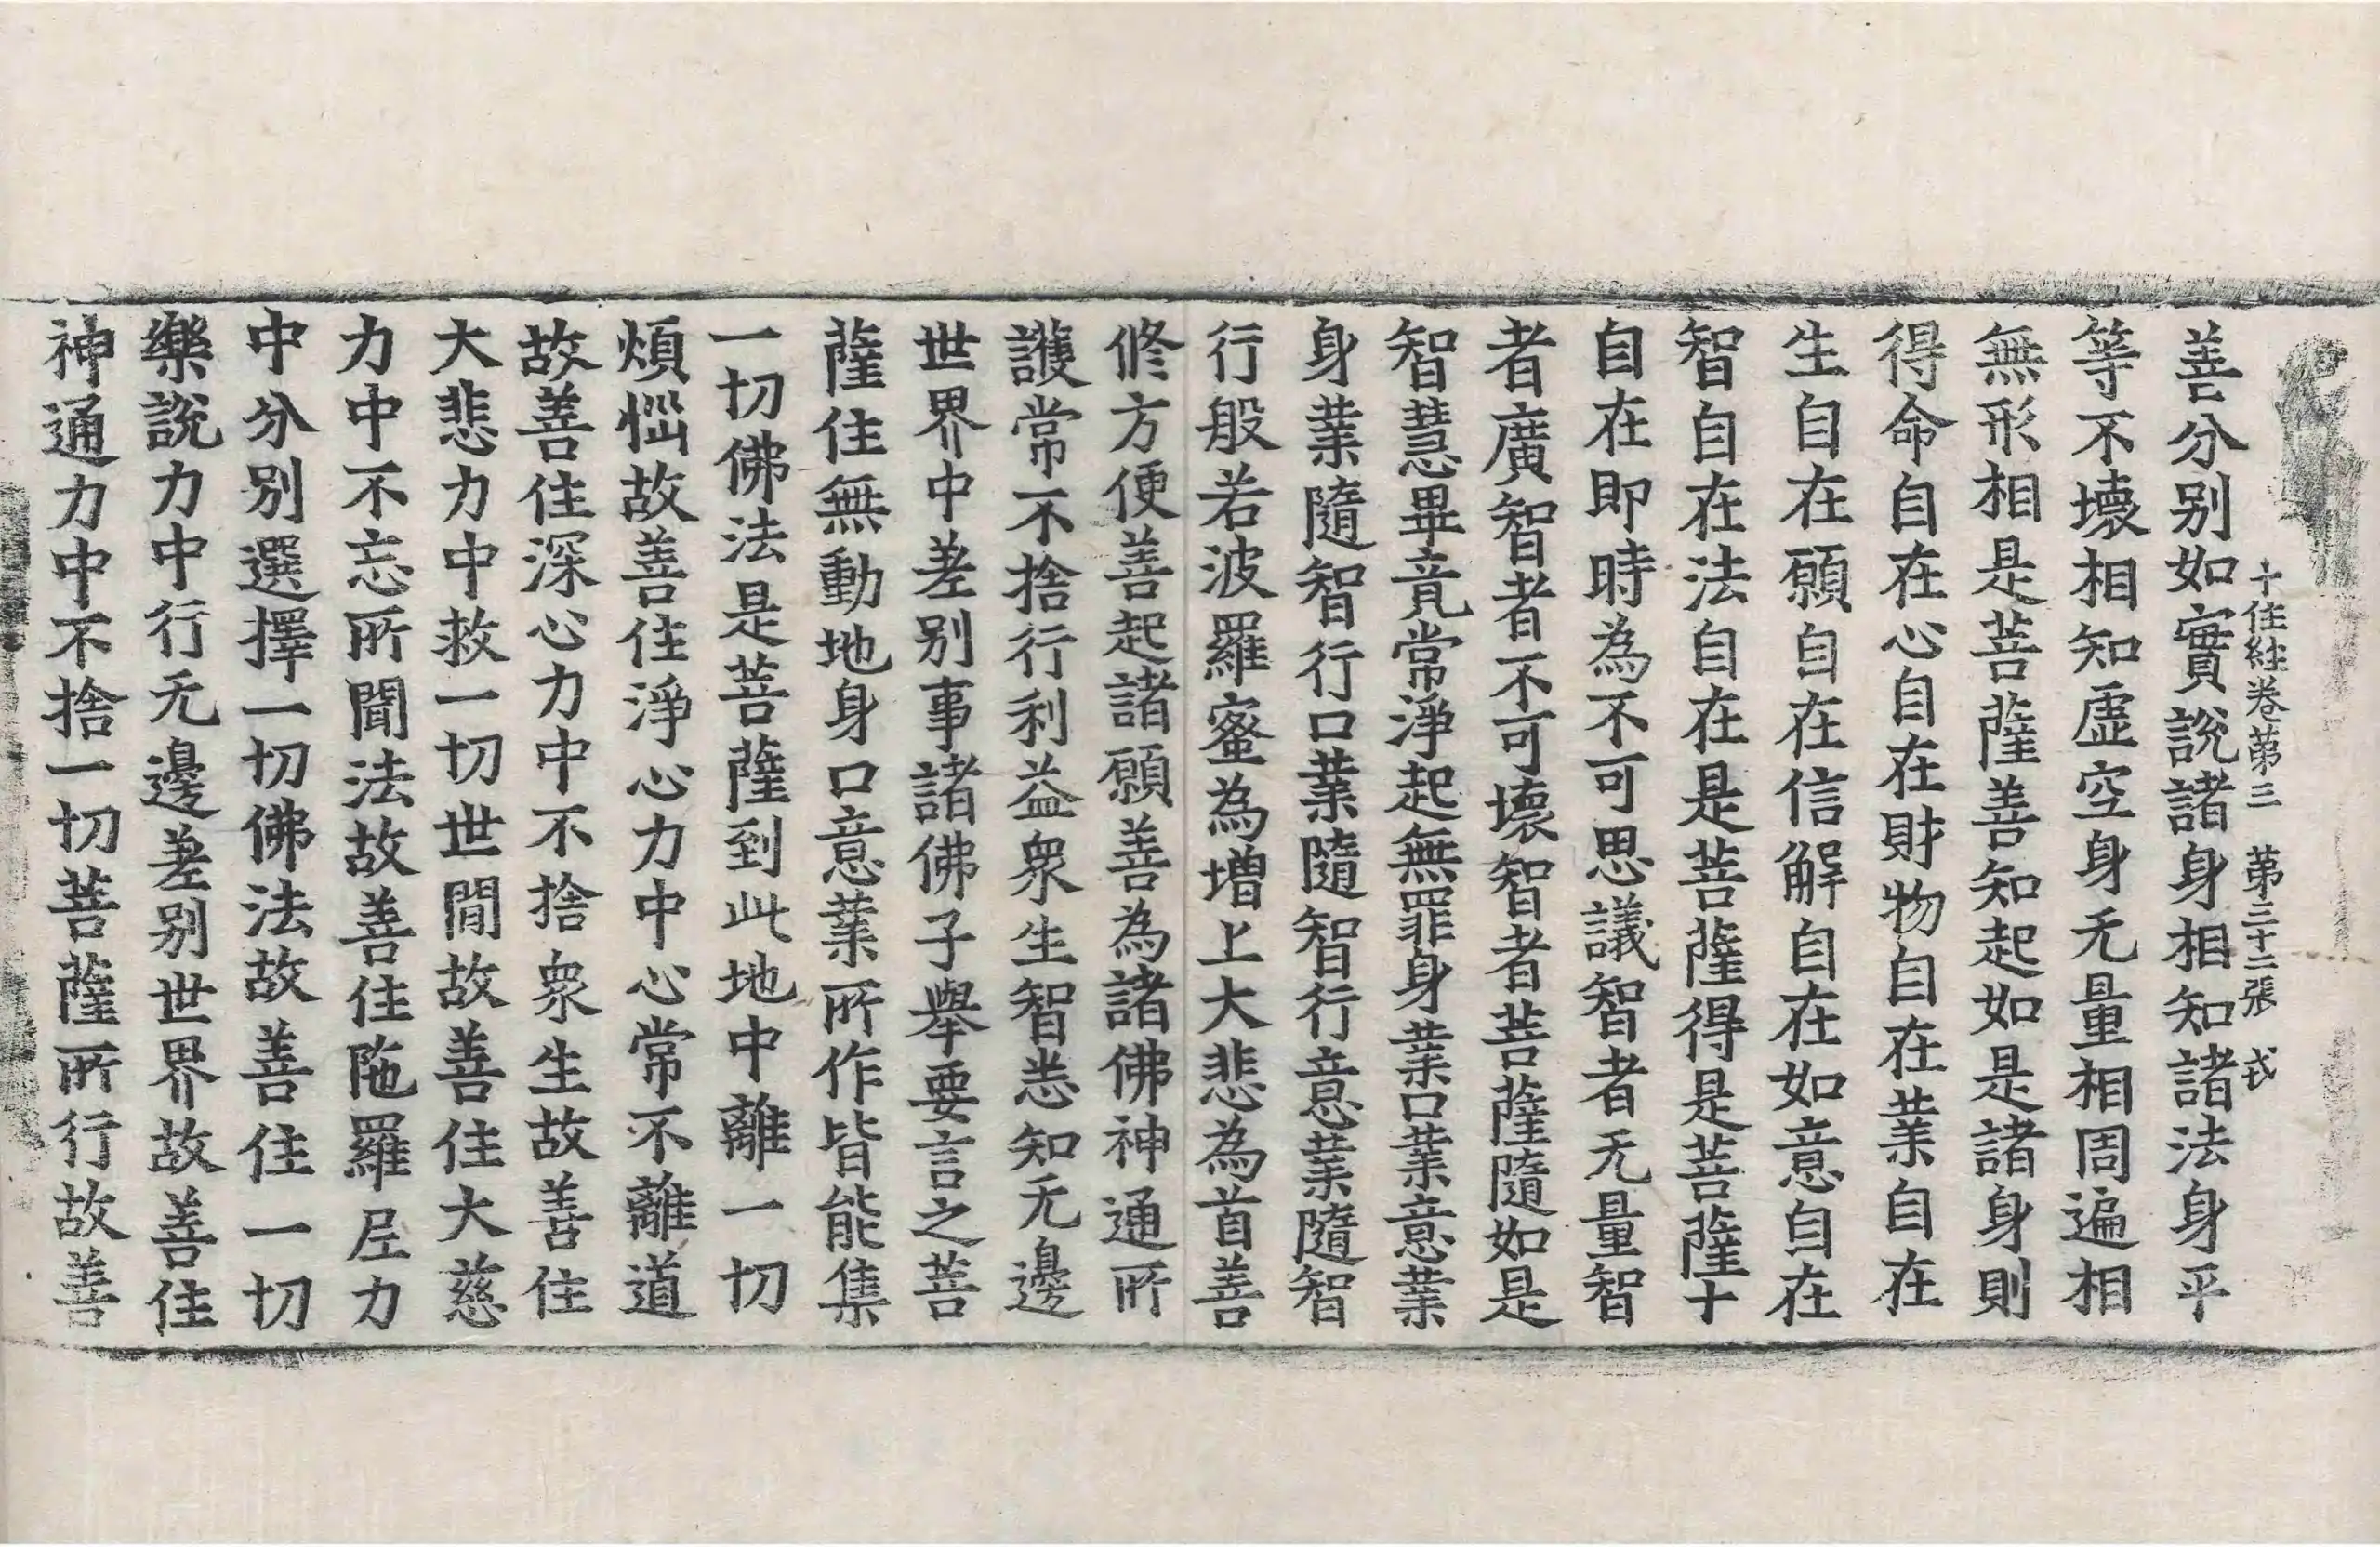 十住經卷第三　第三十二張　戎
善分別如實說諸身相知諸法身平
等不壞相知虛空身无量相周遍相
無形相是菩薩善知起如是諸身則
得命自在心自在財物自在業自在
生自在願自在信解自在如意自在
智自在法自在是菩薩得是菩薩十
自在即時為不可思議智者无量智
者廣智者不可壞智者菩薩隨如是
智慧畢竟常淨起無罪身業口業意業
身業隨智行口業隨智行意業隨智
行般若波羅蜜為增上大悲為首善
修方便善起諸願善為諸佛神通所
護常不捨行利益衆生智悉知无邊
世界中差別事諸佛子舉要言之菩
薩住無動地身口意業所作皆能集
一切佛法是菩薩到此地中離一切
煩惱故善住淨心力中心常不離道
故善住深心力中不捨衆生故善住
大悲力中救一切世間故善住大慈
力中不忘所聞法故善住陁羅尼力
中分別選擇一切佛法故善住一切
樂說力中行无邊差別世界故善住
神通力中不捨一切菩薩所行故善